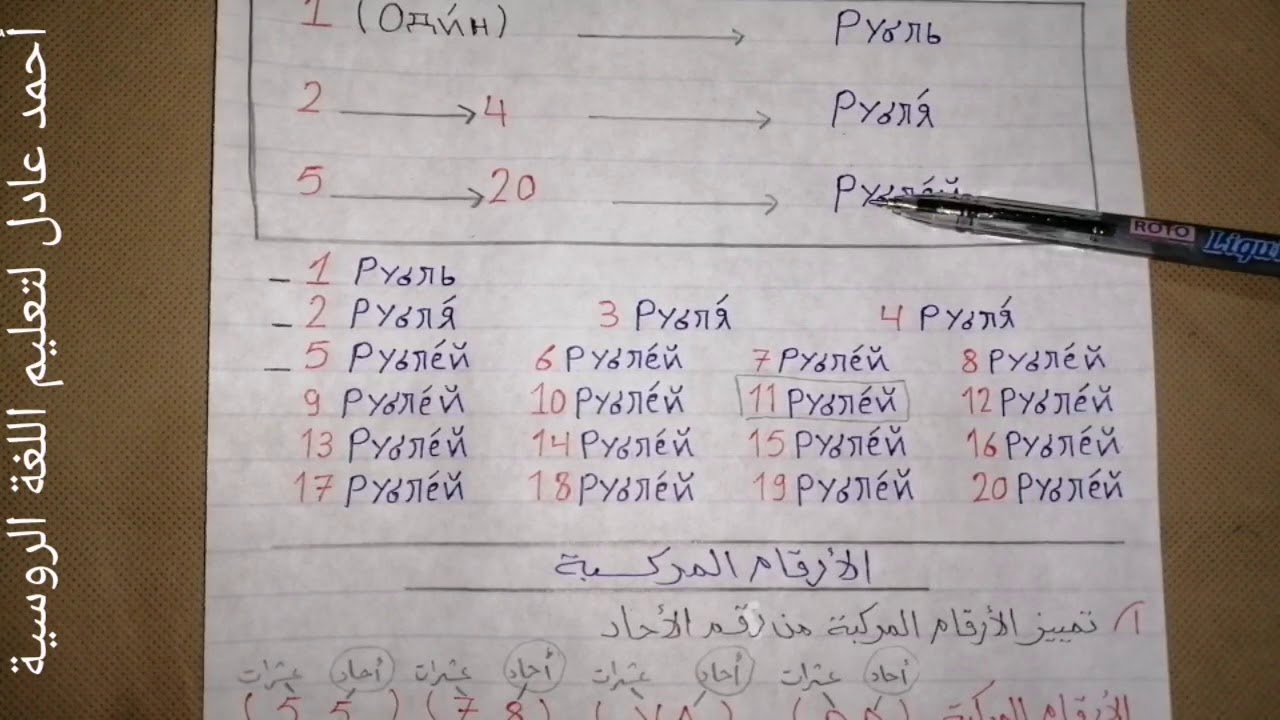 أحمد عادل لتعليم اللغة الروسية
1 (Оди́н) → Рубль
2 → 4 → Рубля́
5 → 20 → Рубле́й
ROTO Liqui
– 1 Рубль
– 2 Рубля́ 3 Рубля́ 4 Рубля́
– 5 Рубле́й 6 Рубле́й 7 Рубле́й 8 Рубле́й
9 Рубле́й 10 Рубле́й 11 Рубле́й 12 Рубле́й
13 Рубле́й 14 Рубле́й 15 Рубле́й 16 Рубле́й
17 Рубле́й 18 Рубле́й 19 Рубле́й 20 Рубле́й
الأرقام المركبة
1) تمييز الأرقام المركبة من رقم الأحاد
أحاد عشرات أحاد عشرات أحاد عشرات أحاد عشرات
الأرقام المركبة (7 8) (5 5)